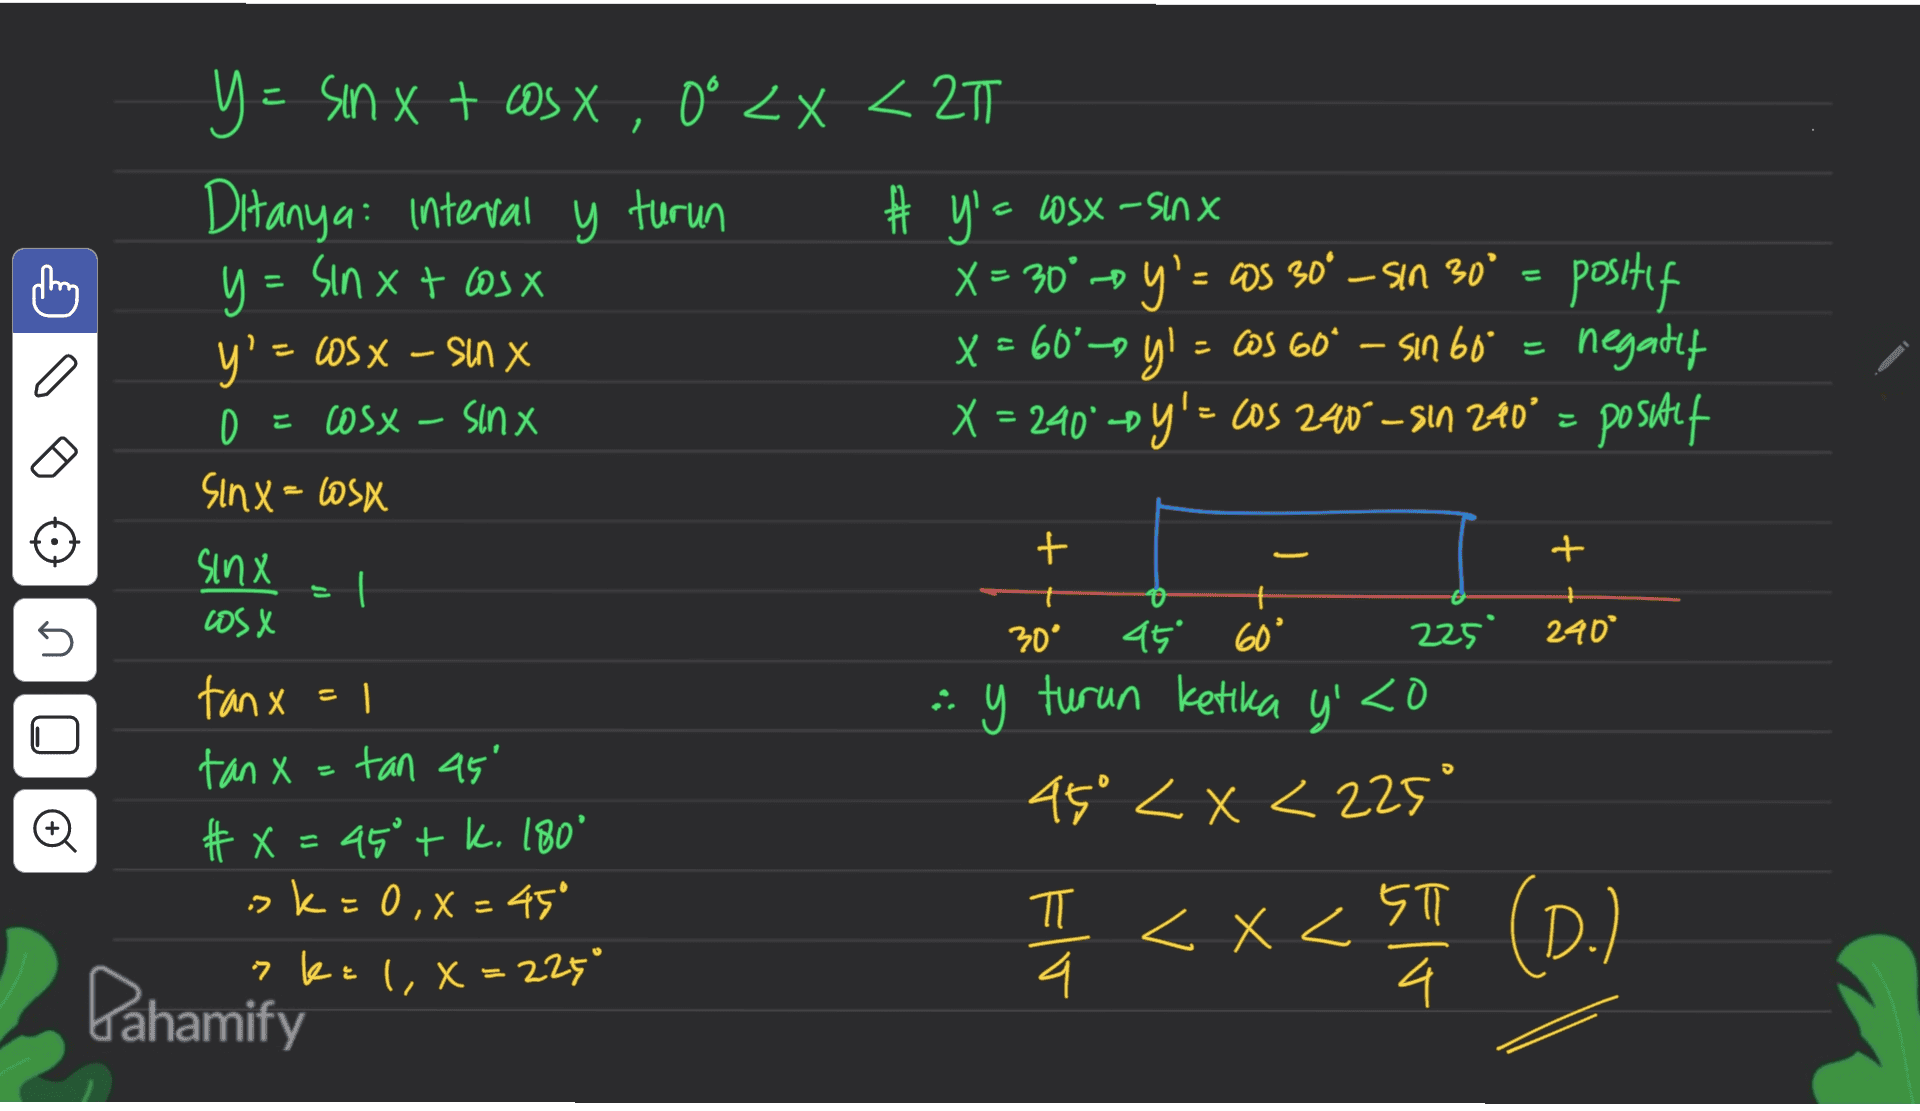 y = sin x + cos x , 0° < x < 2π
Ditanya: interval y turun
y = sin x + cos x
y' = cos x – sin x
0 = cos x – sin x
sin x = cos x
sin x / cos x = 1
tan x = 1
tan x = tan 45°
# x = 45° + k. 180°
> k = 0, x = 45°
> k = 1, x = 225°
# y' = cos x – sin x
x = 30° → y' = cos 30° – sin 30° = positif
x = 60° → y' = cos 60° – sin 60° = negatif
x = 240° → y' = cos 240° – sin 240° = positif
+ – +
30° 45° 60° 225° 240°
∴ y turun ketika y' < 0
45° < x < 225°
π/4 < x < 5π/4 (D.)
Pahamify